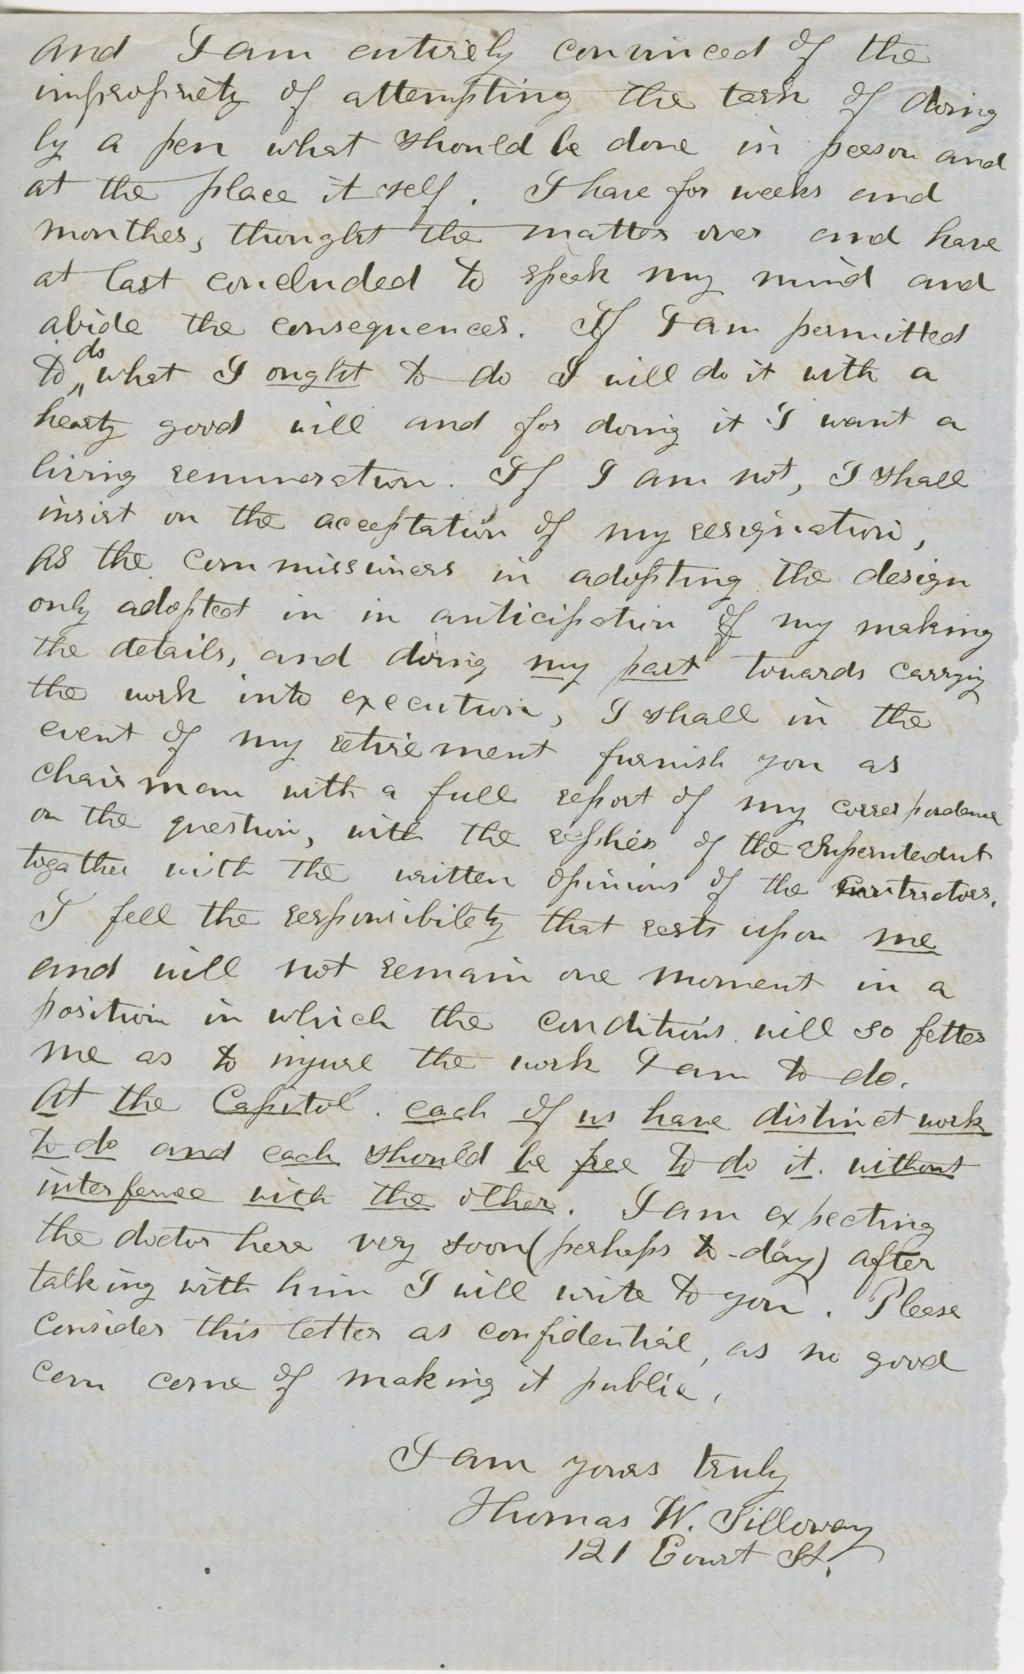 and I am entirely convinced of the
impropriety of attempting the task of doing
by a pen what should be done in person and
at the place it self. I have for weeks and
monthes, thought the matter over and have
at last concluded to speak my mind and
abide the consequences. If I am permitted
to do what I ought to do I will do it with a
hearty good will and for doing it I want a
living remuneration. If I am not, I shall
insist on the acceptation of my resignation,
as the commissioners in adopting the design
only adopted in in anticipation of my making
the details, and doing my part towards carrying
the work into execution, I shall in the
event of my retirement furnish you as
chairman with a full report of my correspondence
on the question, with the replies of the Superintendent
together with the written opinions of the contractors.
I fell the responsibility that rests upon me
and will not remain one moment in a
position in which the conditions will so fetter
me as to injure the work I am to do.
At the Capitol each of us have distinct work
to do and each should be free to do it without
interfence with the other. I am expecting
the doctor here very soon (perhaps to-day) after
talking with him I will write to you. Please
consider this letter as confidential, as no good
can come of making it public.
I am yours truly
Thomas W. Silloway
121 Court St.